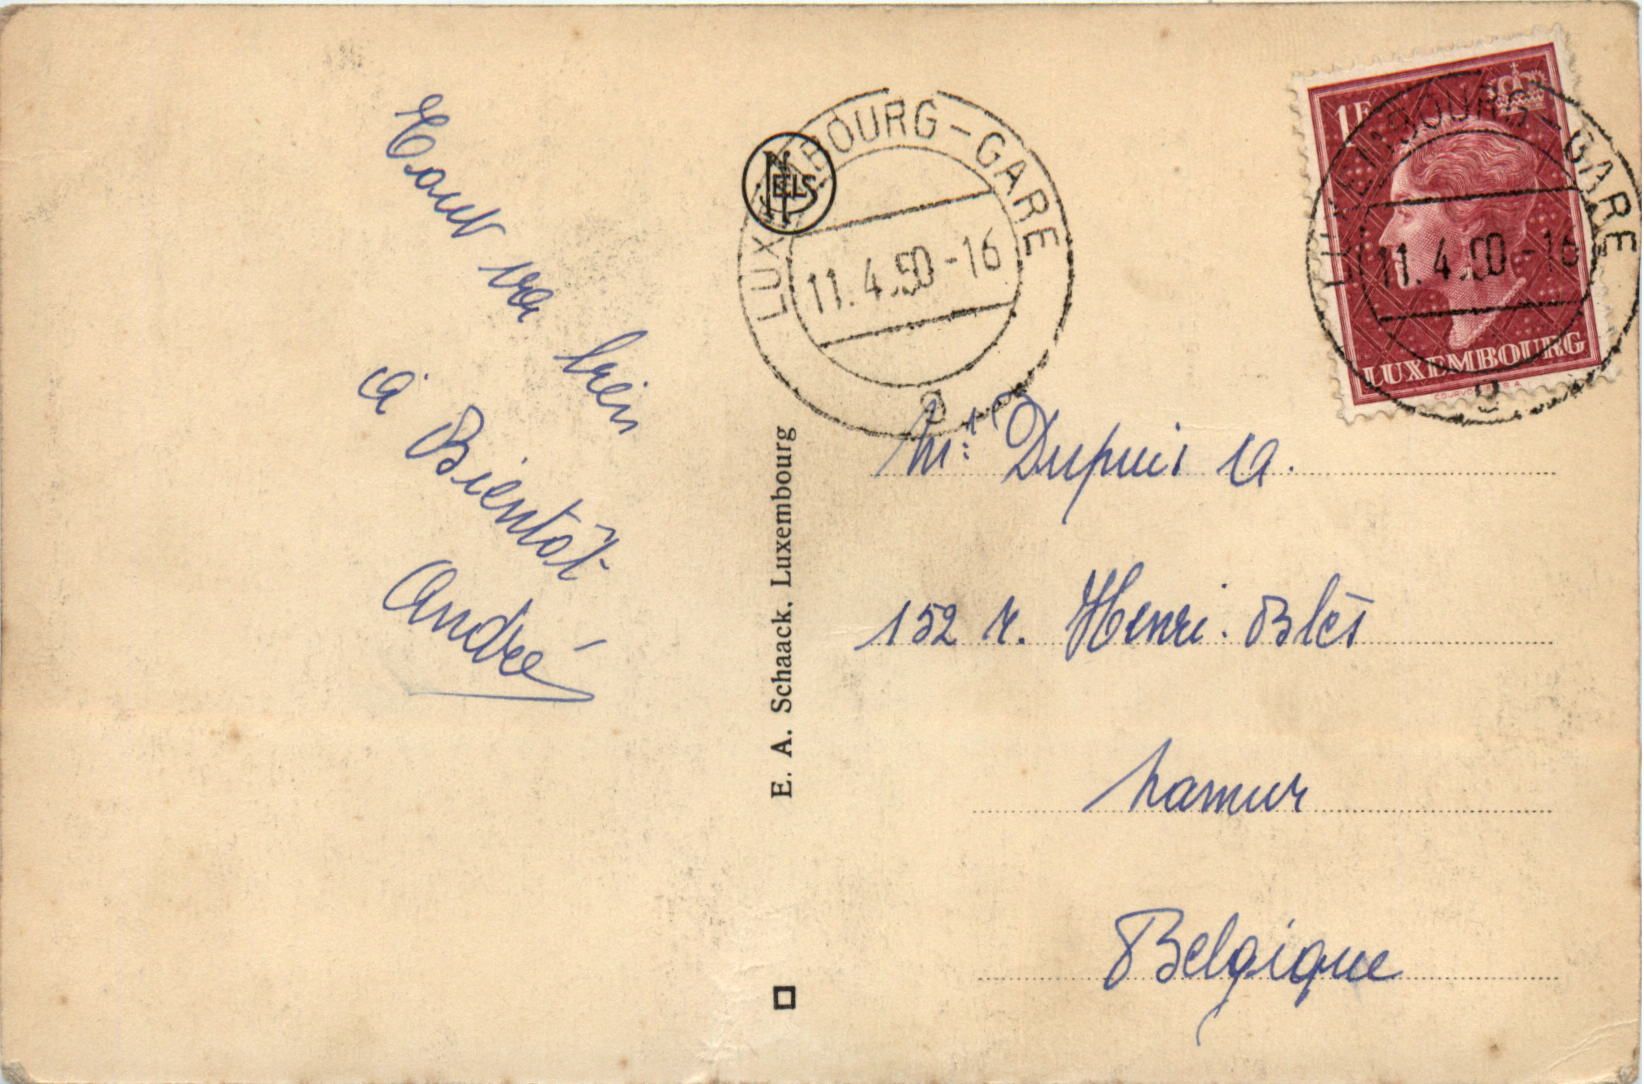 Tout va bien
à Bientôt
André
NELS
E. A. Schaack, Luxembourg
LUXEMBOURG-GARE
11.4.50-16
a
1F
LUXEMBOURG
LUXEMBOURG-GARE
11.4.50-16
Dupuis A.
152 r. Henri. Blès
Namur
Belgique